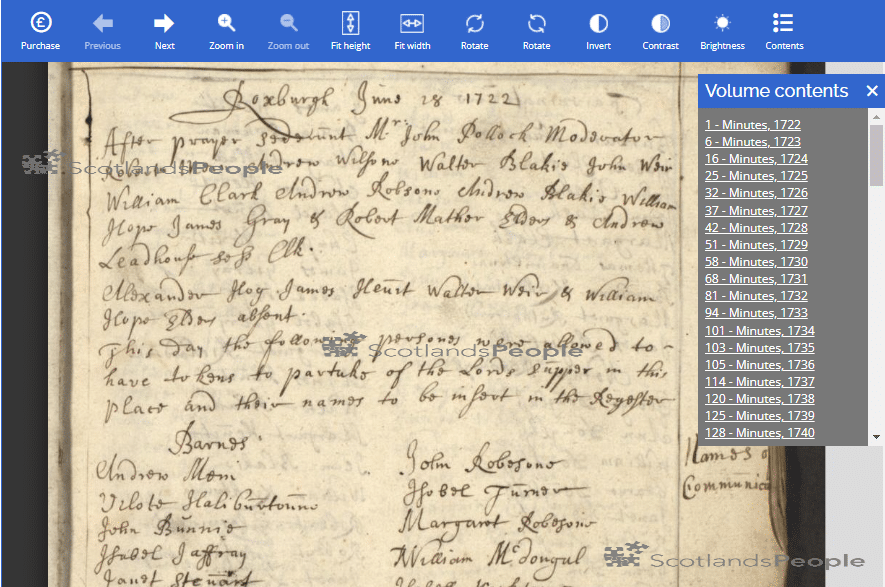 Purchase Previous Next Zoom in Zoom out Fit height Fit width Rotate Rotate Invert Contrast Brightness Contents
Volume contents
1 - Minutes, 1722
6 - Minutes, 1723
16 - Minutes, 1724
25 - Minutes, 1725
32 - Minutes, 1726
37 - Minutes, 1727
42 - Minutes, 1728
51 - Minutes, 1729
58 - Minutes, 1730
68 - Minutes, 1731
81 - Minutes, 1732
94 - Minutes, 1733
101 - Minutes, 1734
103 - Minutes, 1735
105 - Minutes, 1736
114 - Minutes, 1737
120 - Minutes, 1738
125 - Minutes, 1739
128 - Minutes, 1740
Roxburgh June 28 1722
After prayer sederunt Mr John Pollock Moderator
Robert drew Wilsone Walter Blakie John Weir
William Clark Andrew Robsone Andrew Blakie William
Hope James Gray & Robert Mather Elders & Andrew
Leadhouse sess Clk.
Alexander Hog James Heurt Walter Weir & William
Hope Elders absent.
This day the following persones were allowed to
have tokens to partake of the Lords supper in this
place and their names to be insert in the Regester
Barnes.
Andrew Mem
John Robesone
Isobel Turner
John Bunnie
Margaret Robesone
Isobel Jaffray
William McDougul
Janet Steuart
Names o
Communica
ScotlandsPeople
ScotlandsPeople
ScotlandsPeople